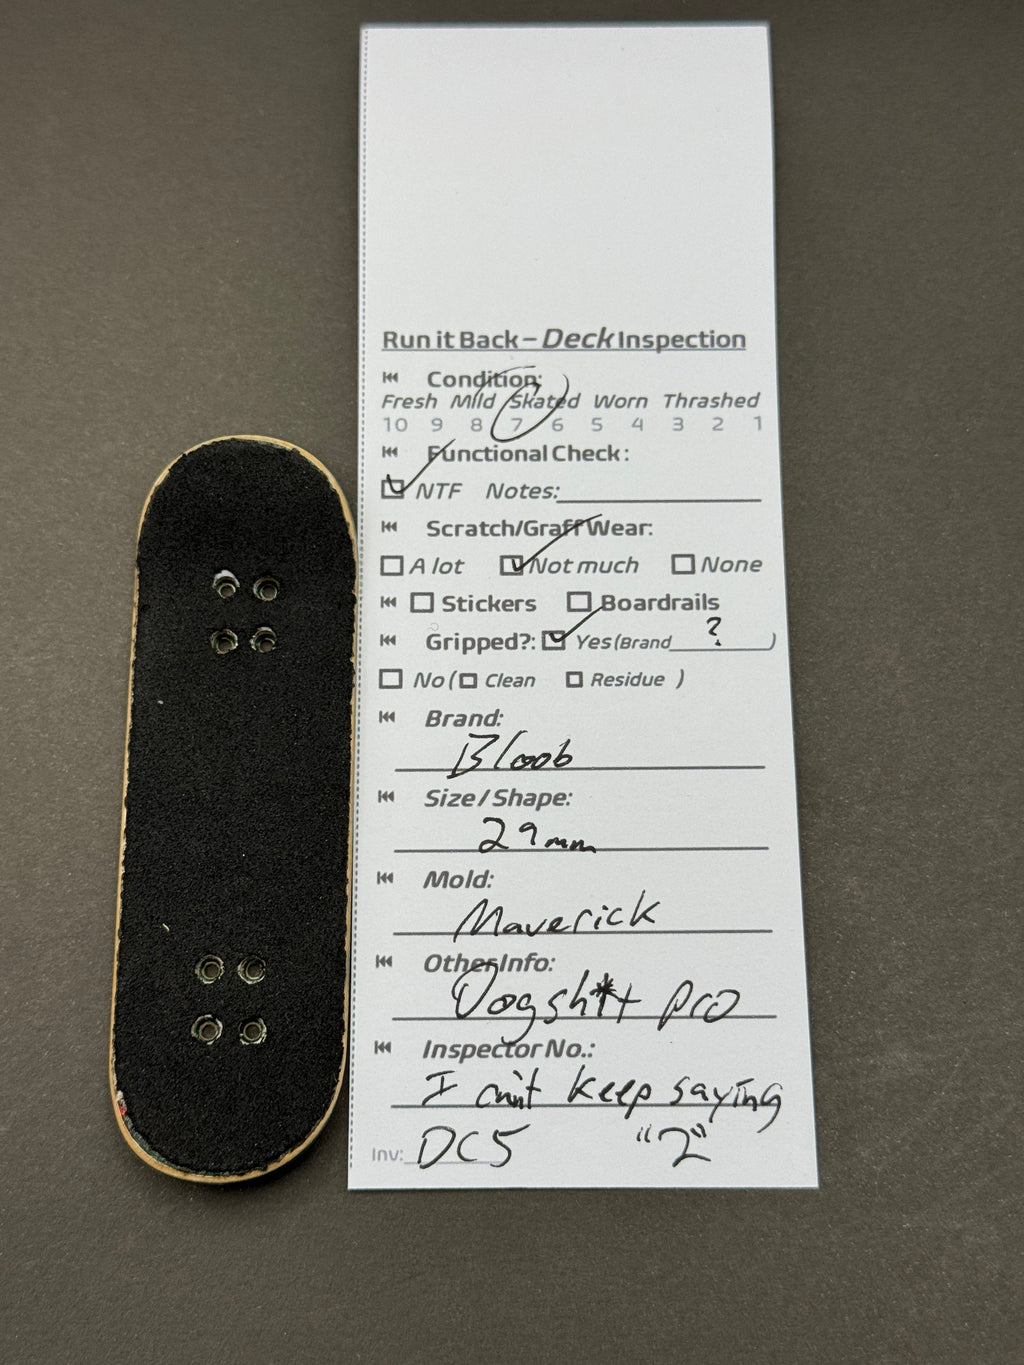 Run it Back – Deck Inspection
Condition:
Fresh Mild Skated Worn Thrashed
10 9 8 7 6 5 4 3 2 1
Functional Check:
NTF Notes:
Scratch/Graff Wear:
A lot Not much None
Stickers Boardrails
Gripped?: Yes (Brand ? )
No ( Clean Residue )
Brand:
Bloob
Size / Shape:
29mm
Mold:
Maverick
Other Info:
Dogsh*t Pro
Inspector No.:
I can't keep saying
"2"
Inv: DC5